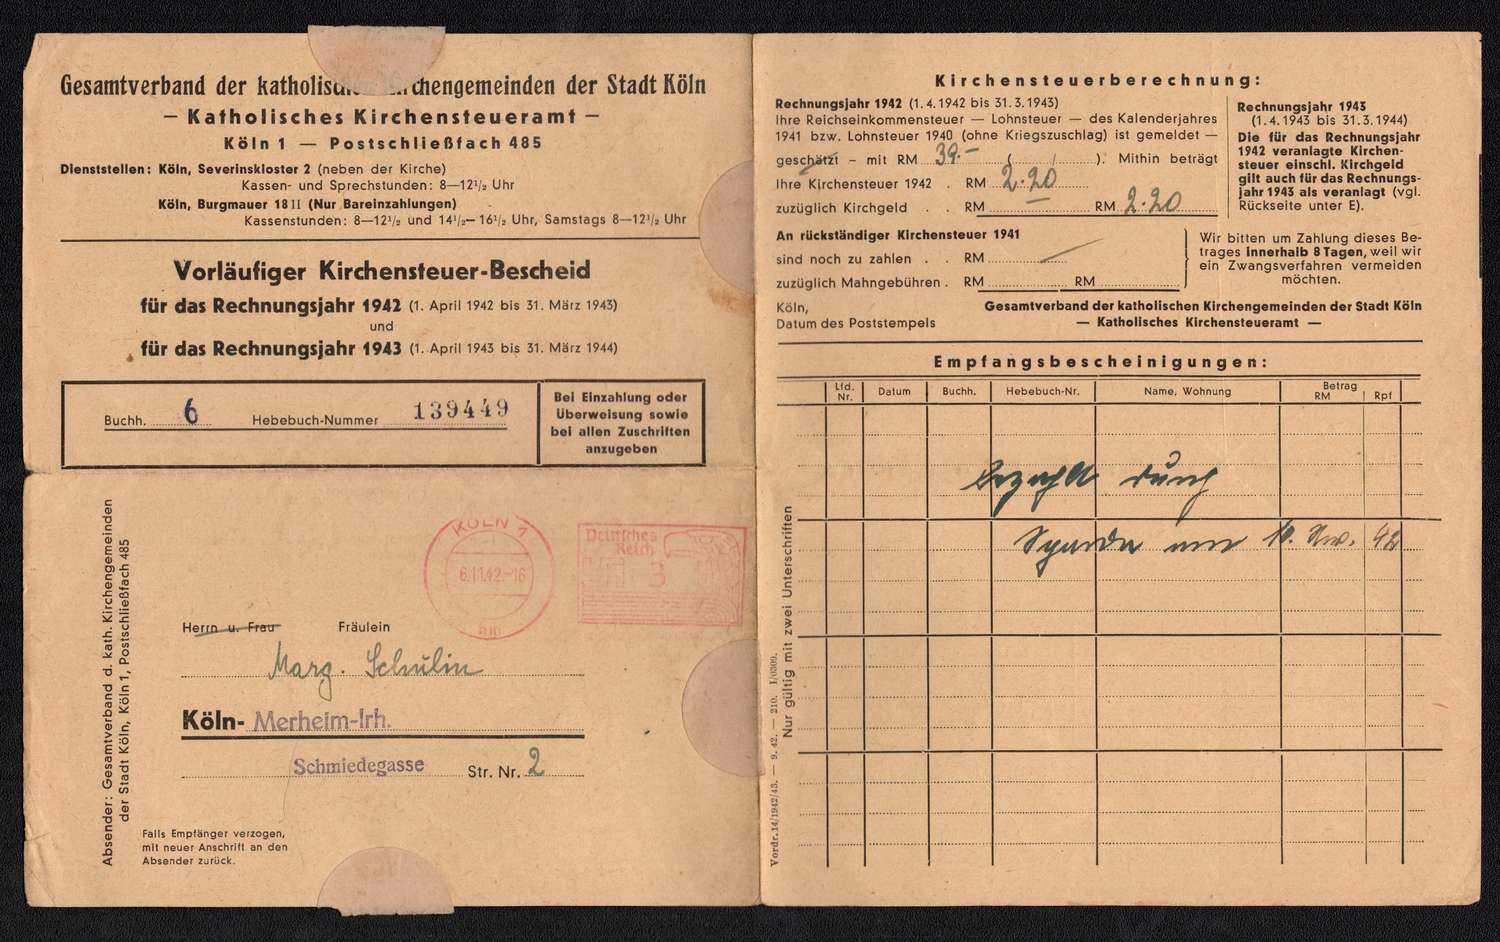 Gesamtverband der katholischen Kirchengemeinden der Stadt Köln
— Katholisches Kirchensteueramt —
Köln 1 — Postschließfach 485
Dienststellen: Köln, Severinskloster 2 (neben der Kirche)
Kassen- und Sprechstunden: 8—12½ Uhr
Köln, Burgmauer 18 II (Nur Bareinzahlungen)
Kassenstunden: 8—12½ und 14½—16½ Uhr, Samstags 8—12½ Uhr
Vorläufiger Kirchensteuer-Bescheid
für das Rechnungsjahr 1942 (1. April 1942 bis 31. März 1943)
und
für das Rechnungsjahr 1943 (1. April 1943 bis 31. März 1944)
Buchh. 6 Hebebuch-Nummer 139449
Bei Einzahlung oder
Überweisung sowie
bei allen Zuschriften
anzugeben
Absender: Gesamtverband d. kath. Kirchengemeinden
der Stadt Köln, Köln 1, Postschließfach 485
KÖLN 1
6.11.42.-16
Deutsches
Reich
3
Herrn u. Frau Fräulein
Marg. Schulin
Köln- Merheim-lrh.
Schmiedegasse Str. Nr. 2
Falls Empfänger verzogen,
mit neuer Anschrift an den
Absender zurück.
Kirchensteuerberechnung:
Rechnungsjahr 1942 (1. 4. 1942 bis 31. 3. 1943)
Ihre Reichseinkommensteuer — Lohnsteuer — des Kalenderjahres
1941 bzw. Lohnsteuer 1940 (ohne Kriegszuschlag) ist gemeldet —
geschätzt — mit RM 39.- ( / ). Mithin beträgt
Ihre Kirchensteuer 1942 . RM 2.20
zuzüglich Kirchgeld . . RM — RM 2.20
Rechnungsjahr 1943
(1. 4. 1943 bis 31. 3. 1944)
Die für das Rechnungsjahr
1942 veranlagte Kirchen-
steuer einschl. Kirchgeld
gilt auch für das Rechnungs-
jahr 1943 als veranlagt (vgl.
Rückseite unter E).
An rückständiger Kirchensteuer 1941
sind noch zu zahlen . . RM
zuzüglich Mahngebühren . RM RM
Wir bitten um Zahlung dieses Be-
trages innerhalb 8 Tagen, weil wir
ein Zwangsverfahren vermeiden
möchten.
Köln,
Datum des Poststempels
Gesamtverband der katholischen Kirchengemeinden der Stadt Köln
— Katholisches Kirchensteueramt —
Empfangsbescheinigungen:
Lfd. Nr. Datum Buchh. Hebebuch-Nr. Name, Wohnung Betrag RM Rpf
bezahlt durch
am 10. Nov. 42
Nur gültig mit zwei Unterschriften
Vordr. 14/1942/43. — 9. 42. — 210. I/0309.